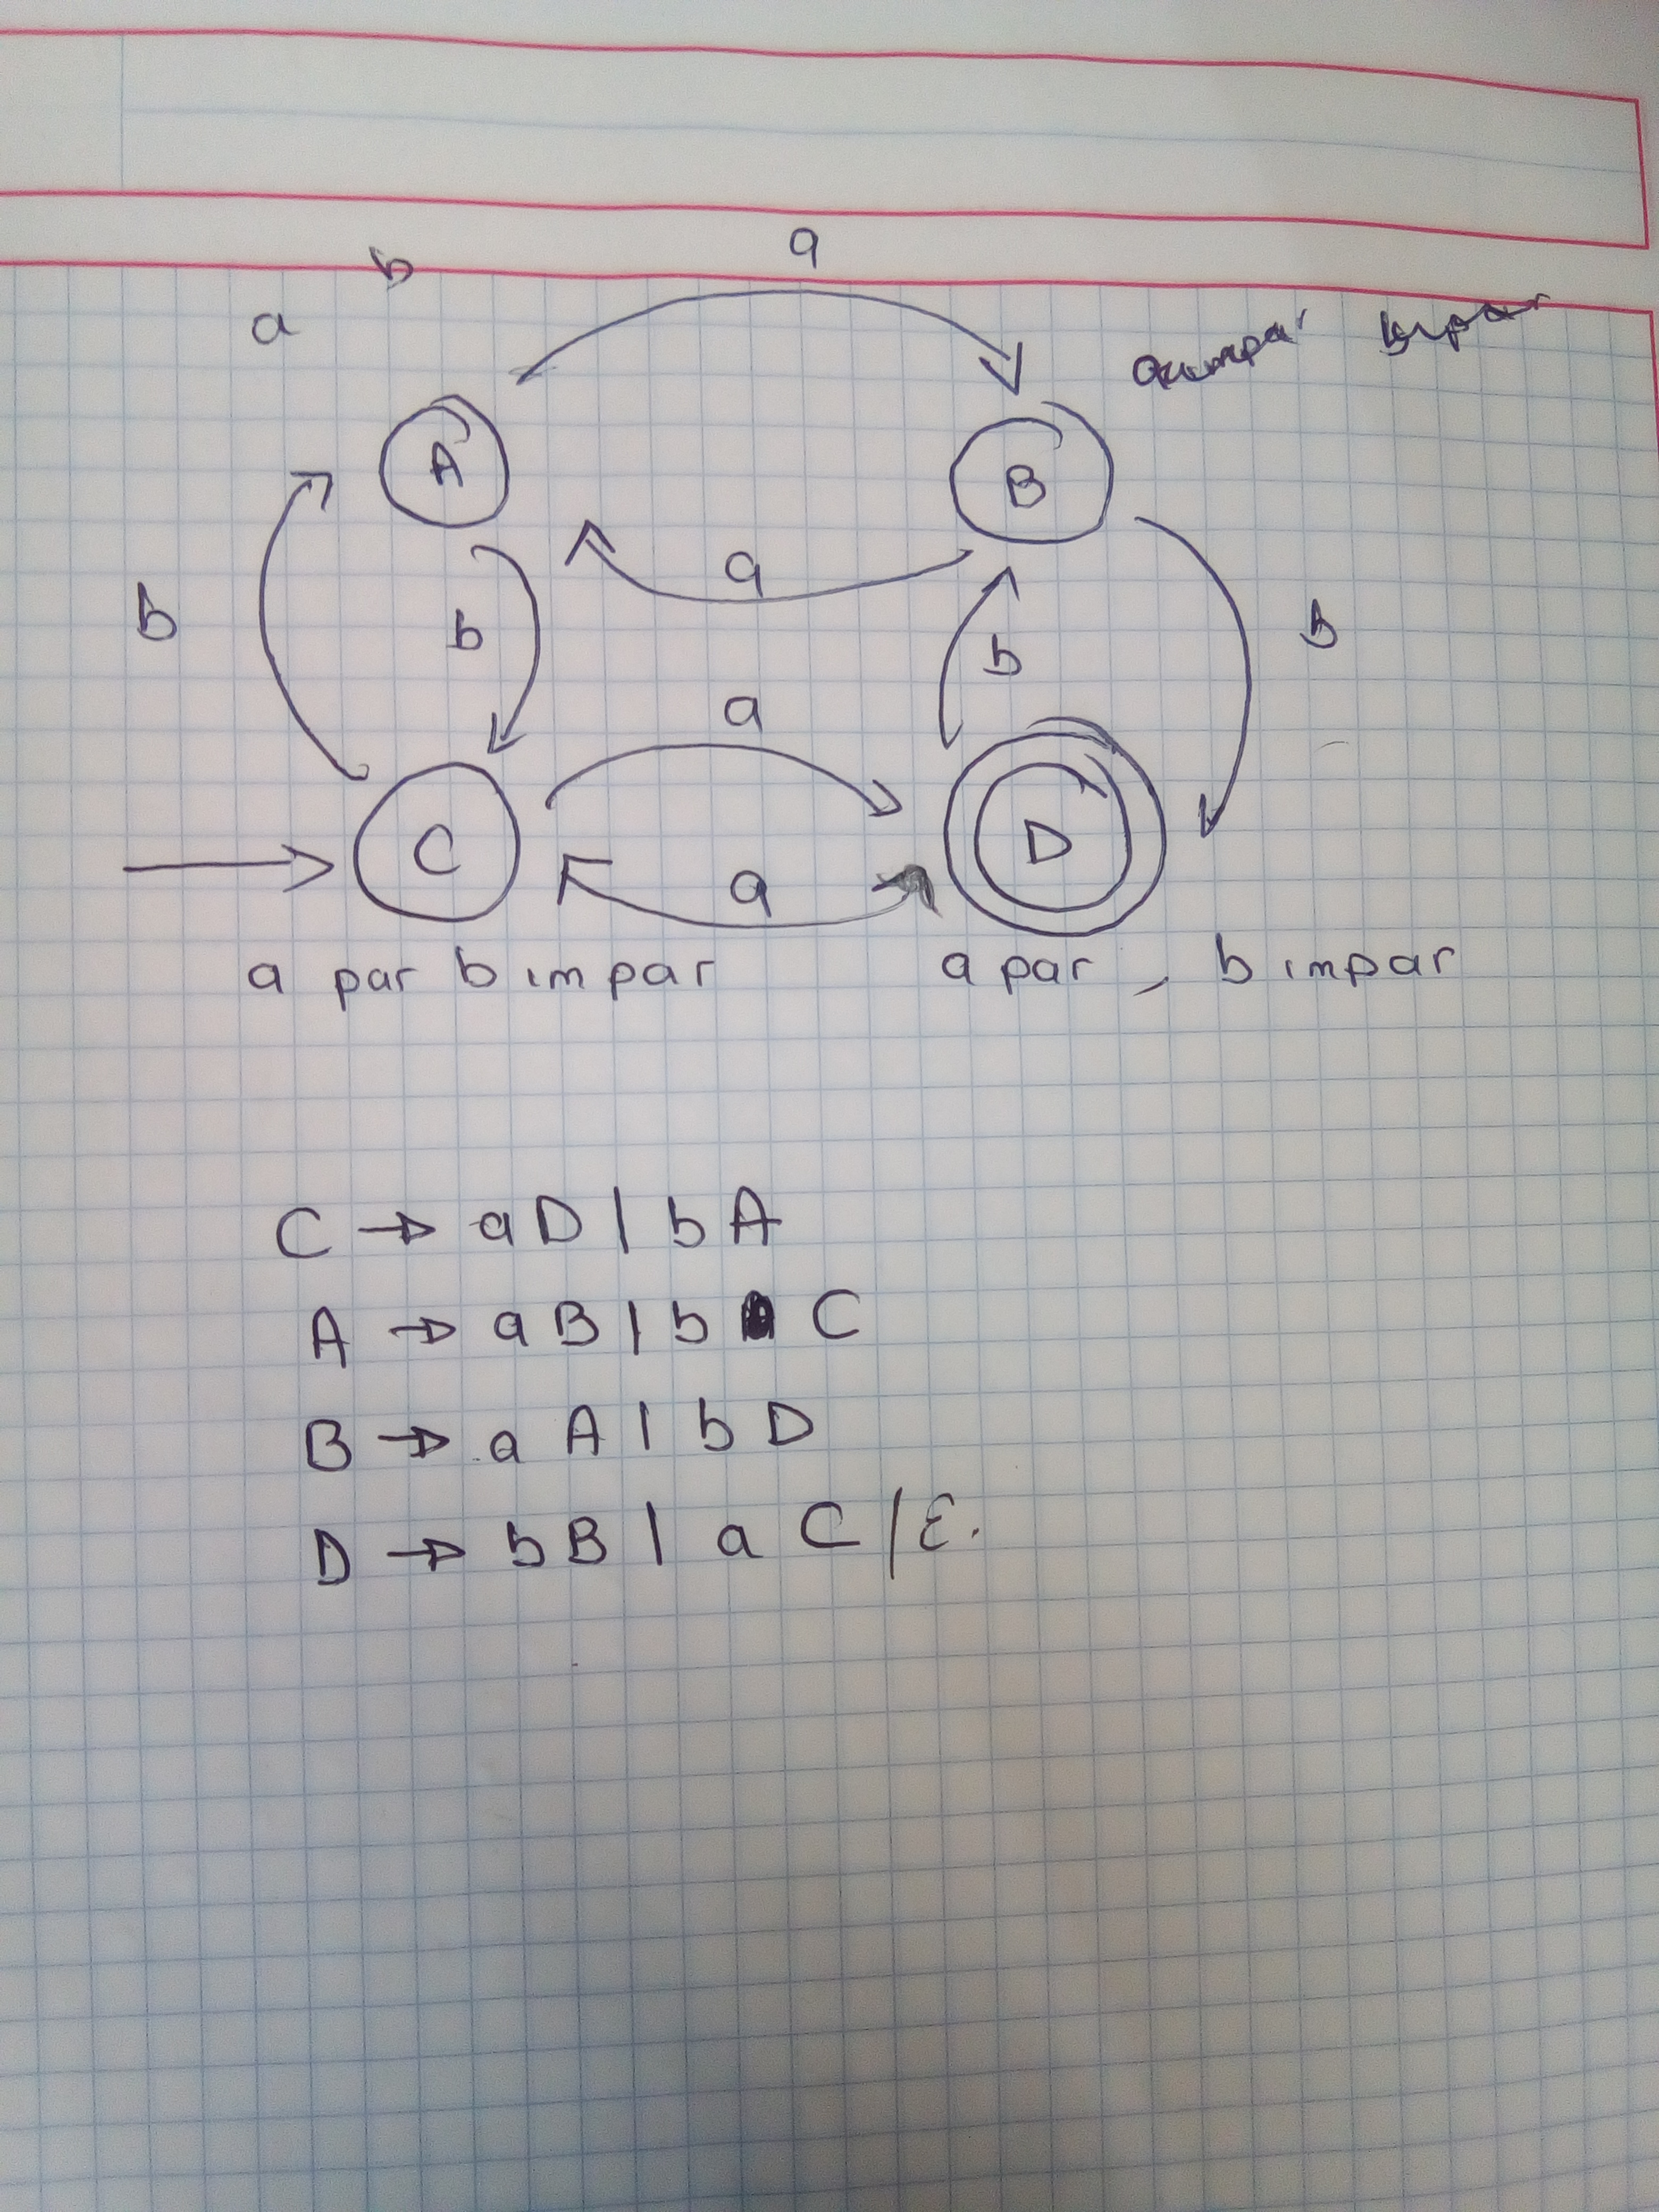 a
b
a
A
B
a
b
b
b
b
a
C
D
a
a par b impar
a par, b impar
C → aD | bA
A → aB | b C
B → aA | bD
D → bB | aC / ε.